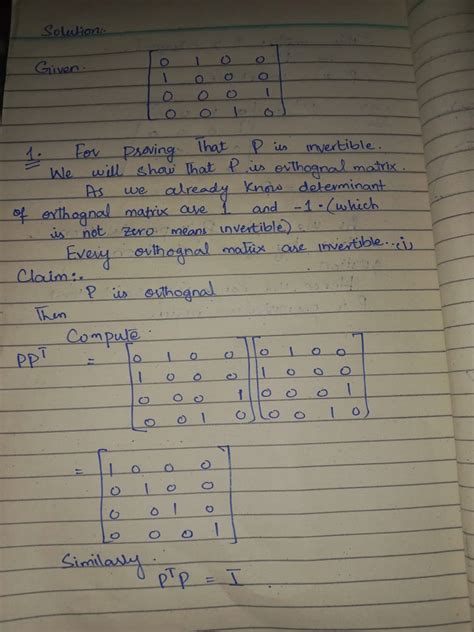 Solution:.
Given.
0 1 0 0
1 0 0 0
0 0 0 1
0 0 1 0
1. For proving That P is invertible.
We will show that P is orthognal matrix.
As we already know determinant
of orthognal matrix are 1 and -1. (which
is not zero means invertible)
Every orthognal matrix are invertible...(i)
Claim:.
P is orthognal
Then
Compute.
PPᵀ =
0 1 0 0 0 1 0 0
1 0 0 0 1 0 0 0
0 0 0 1 0 0 0 1
0 0 1 0 0 0 1 0
=
1 0 0 0
0 1 0 0
0 0 1 0
0 0 0 1
Similarly.
PᵀP = I